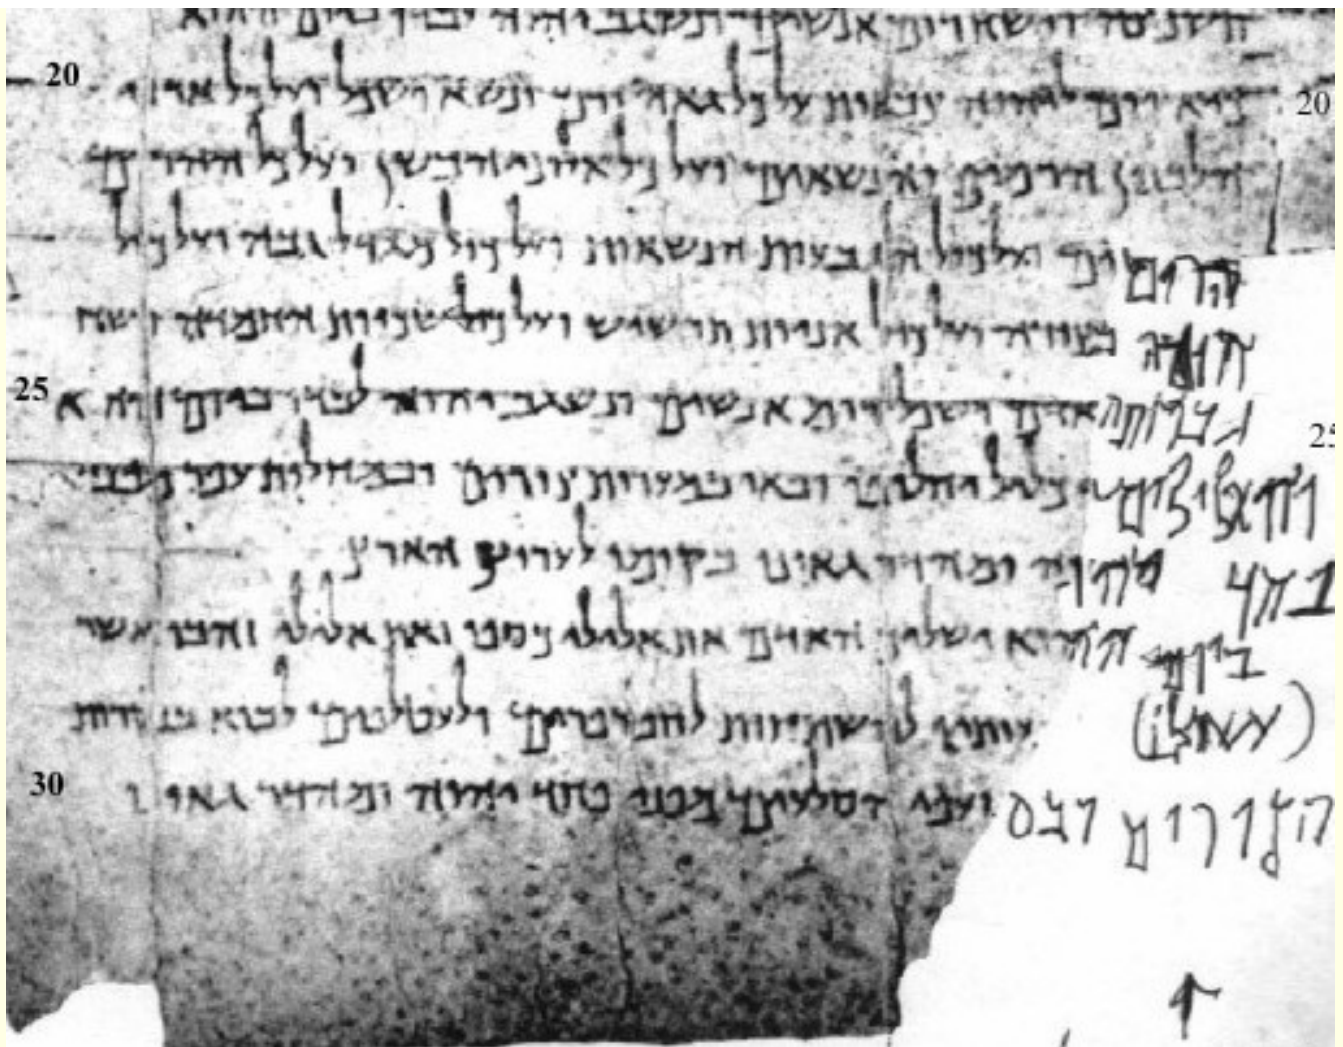 אנשים ונשגב יהוה לבדו ביום ההוא
20 יום ליהוה צבאות על כל גאה ורם ונשא ושפל ועל כל ארזי 20
הלבנון הרמים והנשאים ועל כל אלוני הבשן ועל כל ההרים
הרמים ועל כול הגבעות הנשאות ועל כול מגדל גבה ועל כול
חומה בצורה ועל כול אניות תרשיש ועל כול שכיות החמדה ושח
25 גבהות האדם ושפל רום אנשים ונשגב יהוה לבדו ביום ההוא 25
והאלילים כליל יחלופו ובאו במערות צורים ובמחלות עפר מפני
פחד יהוה ומהדר גאונו בקומו לערוץ הארץ
ביום ההוא ישליך האדם את אלילי כספו ואת אלילי זהבו אשר
להשתחות לחפרפרים ולעטלפים לבוא בנקרות
30 הצורים ובסעיפי הסלעים מפני פחד יהוה ומהדר גאונו